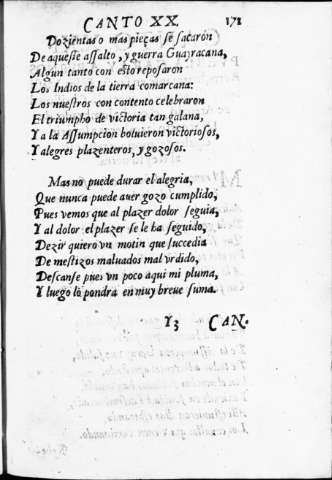 CANTO XX. 171
Dozientas o mas pieças se sacaron
De aqueste assalto, y guerra Guayracana,
Algun tanto con esto reposaron
Los Indios de la tierra comarcana:
Los nuestros con contento celebraron
El triumpho de victoria tan galana,
Y a la Assumpcion boluieron victoriosos,
Y alegres plazenteros, y gozosos.
Mas no puede durar el alegria,
Que nunca puede auer gozo cumplido,
Pues vemos que al plazer dolor seguia,
Y al dolor el plazer se le ha seguido,
Dezir quiero vn motin que succedia
De mestizos maluados mal vrdido,
Descanse pues vn poco aqui mi pluma,
Y luego lo pondra en muy breue suma.
Y3 CAN.